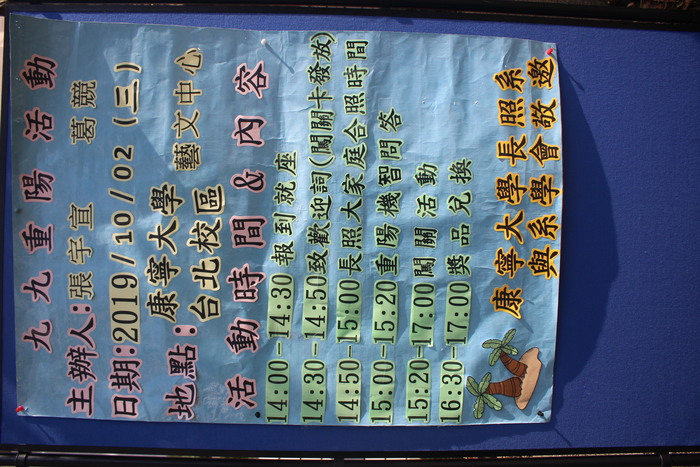 九九重陽活動
主辦人:張宇宣 葛競
日期:2019/10/02 (三)
地點:康寧大學 藝文中心
台北校區
活動時間&內容
14:00-14:30 報到就座
14:30-14:50 致歡迎詞(闖關卡發放)
14:50-15:00 長照大家庭合照時間
15:00-15:20 重陽機智問答
15:20-17:00 闖關活動
16:30-17:00 獎品兌換
康寧大學長照系
與系學會敬邀